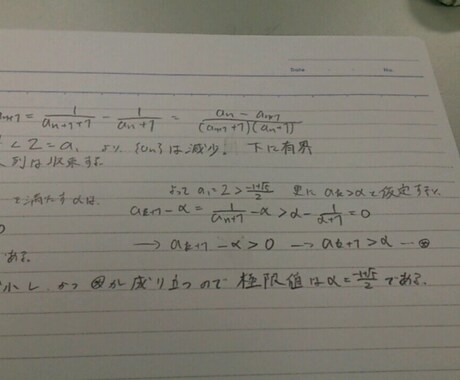 Date ・ ・ No.
aₙ₊₁ = 1/(aₙ₊₁+1) - 1/(aₙ+1) = (aₙ - aₙ₊₁)/((aₙ₊₁+1)(aₙ+1))
< 2 = a₁ より {aₙ}は減少。 下に有界
列は収束する。
で満たすαは よって a₁=2 > (-1+√5)/2 更に aₖ>αと仮定すると
aₖ₊₁ - α = 1/(aₙ+1) - α > α - 1/(α+1) = 0
ある。 → aₖ₊₁ - α > 0 → aₖ₊₁ > α …
小し、よって が成り立つので 極限値はα = (-1+√5)/2 である。